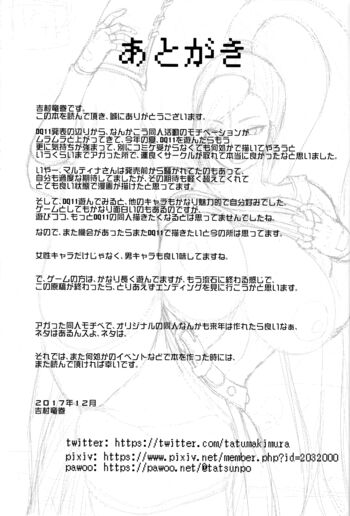 あとがき
吉村竜巻です。
この本を読んで頂き、誠にありがとうございます。
DQ11発表の辺りから、なんかこう同人活動のモチベーションが
ムラムラと上がってきて、今年の夏、DQ11を遊んだらもう
更に気持ちが強まって、別にコミケ受からなくても何処かで描いてやろうと
いうくらいまでアガった所で、運良くサークルが取れて本当に良かったなと思いました。
いやー、マルティナさんは発売前から騒がれてたのもあって、
自分も過度な期待してましたが、その期待も軽く超えてくれて
とても良い状態で漫画が描けたと思ってます。
そして、DQ11遊んでみると、他のキャラもかなり魅力的で自分好みでした。
ゲームとしてもかなり面白いのもあるのですが、
遊びつつ、もっとDQ11の同人描きたくなるとは思ってませんでしたね。
なので、また機会があったらまたDQ11で描きたいと今の所は思ってます。
女性キャラだけじゃなく、男キャラも良い話してますね。
で、ゲームの方は、かなり長く遊んでますが、もう流石に終わる感じで、
この原稿が終わったら、とりあえずエンディングを見に行こうかと思います。
アガった同人モチベで、オリジナルの同人なんかも来年は作れたら良いなぁ、
ネタはあるんスよ、ネタは。
それでは、また何処かのイベントなどで本を作った時には、
また読んで頂ければ幸いです。
2017年12月
吉村竜巻
twitter: https://twitter.com/tatumakimura
pixiv: https://www.pixiv.net/member.php?id=2032000
pawoo: https://pawoo.net/@tatsunpo